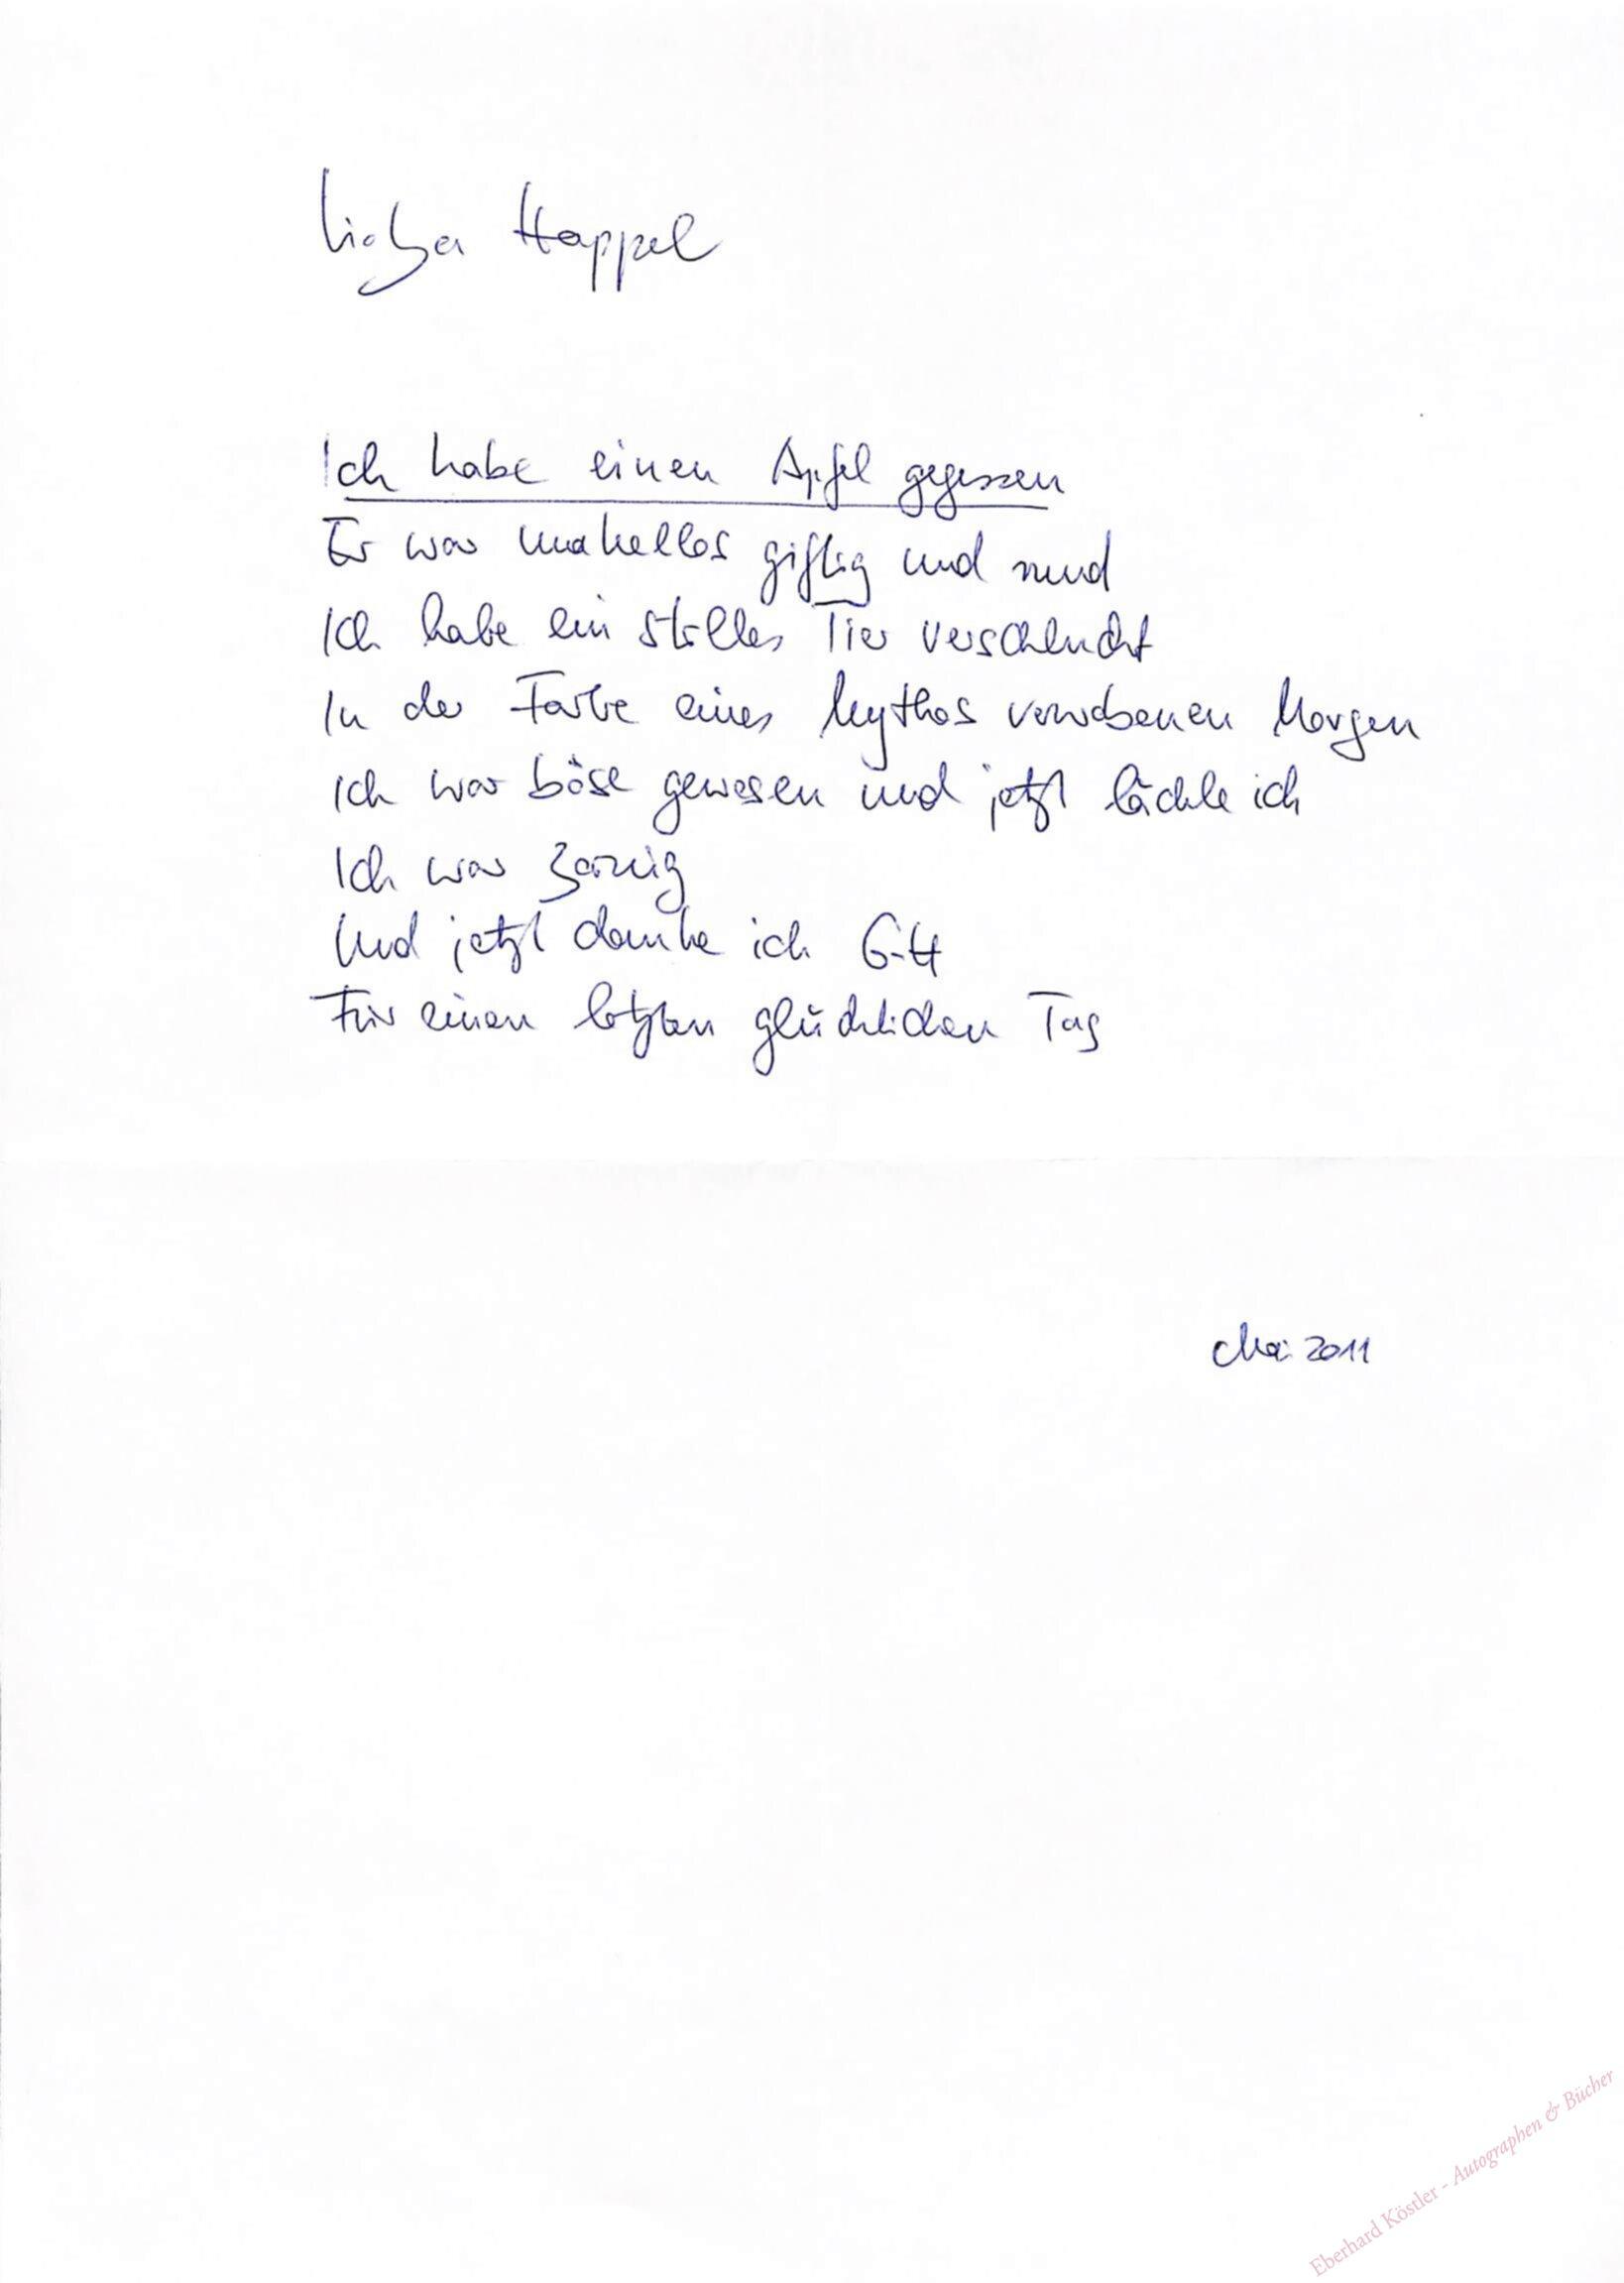 Lieber Happel
Ich habe einen Apfel gegessen
Er war makellos giftig und rund
Ich habe ein stilles Tier verschluckt
In der Farbe eines Mythos verwobenen Morgen
Ich war böse gewesen und jetzt lächle ich
Ich war zornig
Und jetzt danke ich Gott
Für einen letzten glücklichen Tag
Mai 2011
Eberhard Köstler - Autographen & Bücher